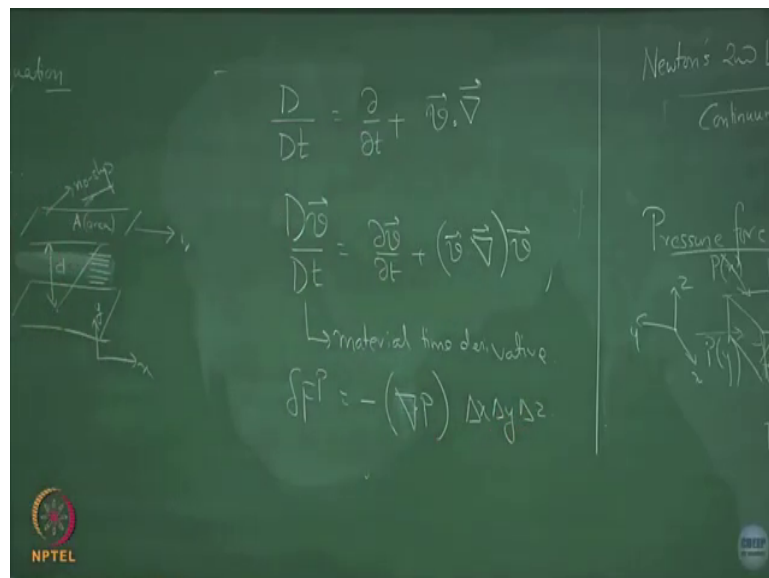 uation
no-slip
A(area)
d
x
D/Dt = ∂/∂t + v⃗.∇⃗
Dv⃗/Dt = ∂v⃗/∂t + (v⃗ ∇⃗)v⃗ ,
↳ material time derivative
δF^P = - (∇P) Δx Δy Δz
Newton's 2nd L
Continuum
Pressure force
P(x)
z
y
P(y)
x
NPTEL
CDEEP